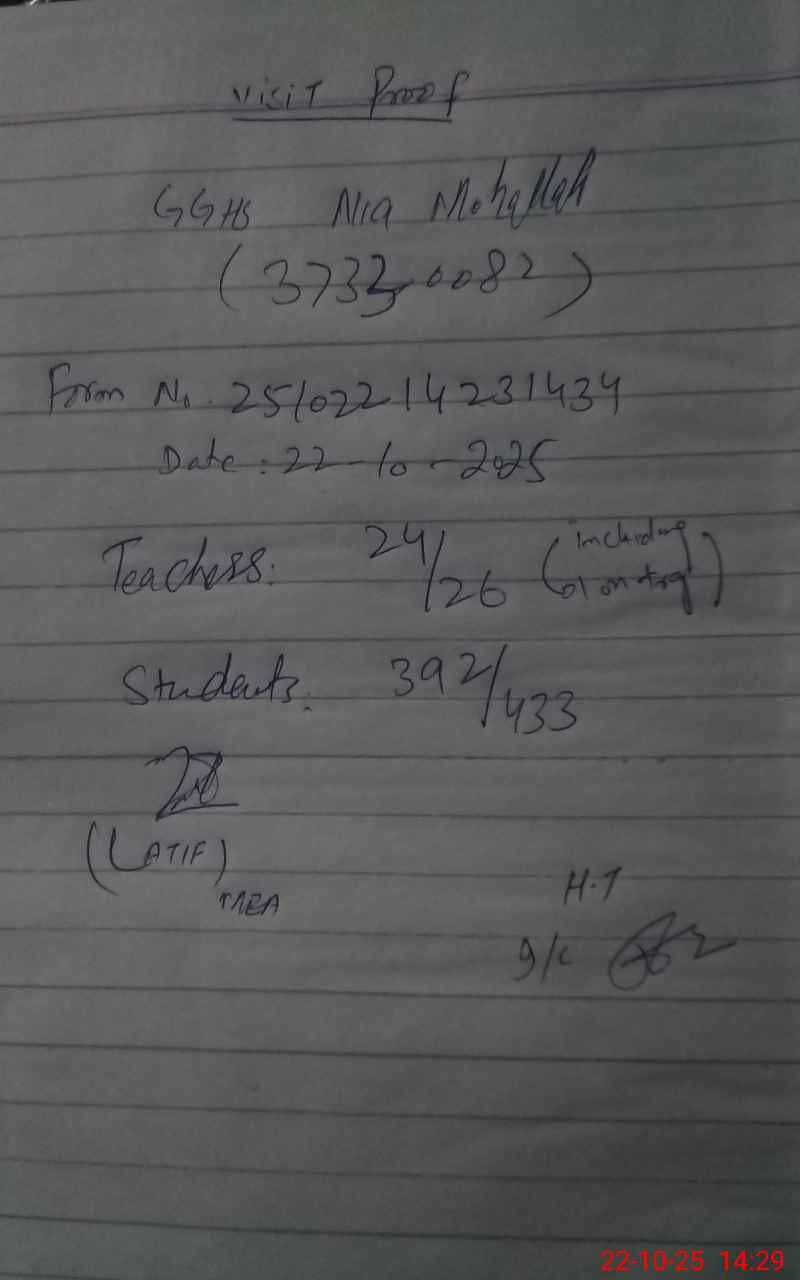 Visit Proof
GGHS Nia Mohallah
(37330082)
Form No. 25102214231434
Date: 22-10-2025
Teachers: 24/26 (including 01 on trg)
Students: 392/433
(LATIF)
MEA
H.T
I/C
22-10-25 14:29